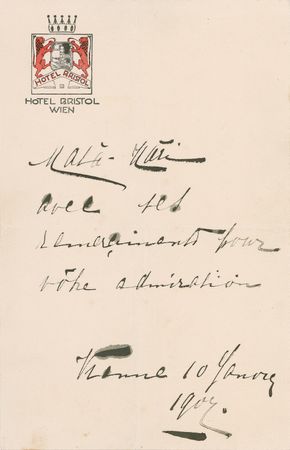 HOTEL BRISTOL
HOTEL BRISTOL
WIEN
Mata-Hari
avec ses
remerciments pour
votre admiration
Vienne 10 Janvier
1907.